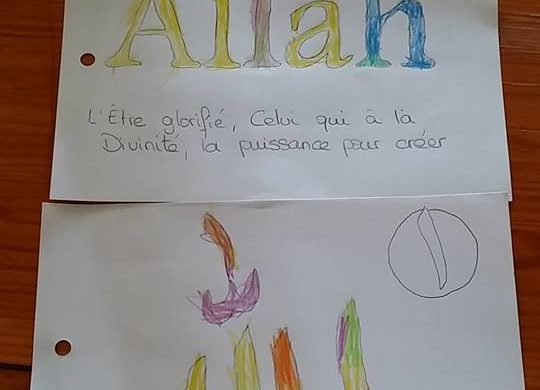 Allah
L'Être glorifié, Celui qui à là
Divinite, la puissance pour créer